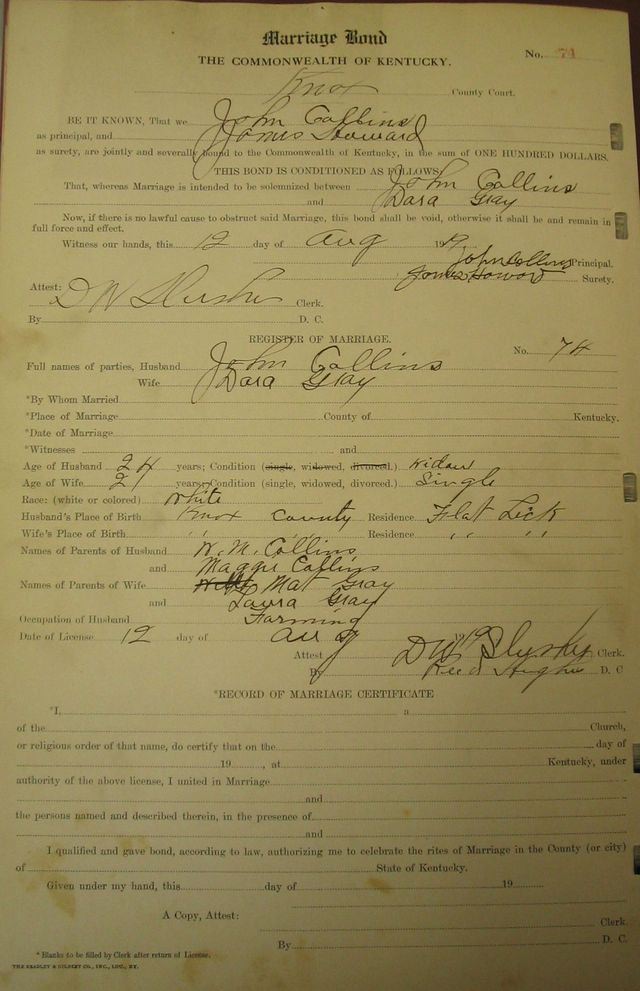 Marriage Bond
THE COMMONWEALTH OF KENTUCKY.
No. 74
Knox County Court.
BE IT KNOWN, That we John Collins
as principal, and James Howard
as surety, are jointly and severally bound to the Commonwealth of Kentucky, in the sum of ONE HUNDRED DOLLARS.
THIS BOND IS CONDITIONED AS FOLLOWS:
That, whereas Marriage is intended to be solemnized between John Collins
and Dara Gray
Now, if there is no lawful cause to obstruct said Marriage, this bond shall be void, otherwise it shall be and remain in
full force and effect.
Witness our hands, this 12 day of Aug 19
John Collins Principal.
James Howard Surety.
Attest:
D W Slusher Clerk.
By D. C.
REGISTER OF MARRIAGE.
No. 74
Full names of parties, Husband John Collins
Wife Dara Gray
*By Whom Married
*Place of Marriage County of Kentucky.
*Date of Marriage
*Witnesses and
Age of Husband 24 years; Condition (single, widowed, divorced.) widow
Age of Wife 21 years; Condition (single, widowed, divorced.) Single
Race: (white or colored) White
Husband's Place of Birth Knox County Residence Flat Lick
Wife's Place of Birth " " Residence " " " "
Names of Parents of Husband W. M. Collins
and Maggie Collins
Names of Parents of Wife Mat Gray
and Laura Gray
Occupation of Husband Farming
Date of License 12 day of Aug 19
Attest D W Slusher Clerk.
By Reed Hughes D. C
*RECORD OF MARRIAGE CERTIFICATE
*I, a
of the Church,
or religious order of that name, do certify that on the day of
19 , at Kentucky, under
authority of the above license, I united in Marriage
and
the persons named and described therein, in the presence of
and
I qualified and gave bond, according to law, authorizing me to celebrate the rites of Marriage in the County (or city)
of State of Kentucky.
Given under my hand, this day of 19
A Copy, Attest:
Clerk.
By D. C.
*Blanks to be filled by Clerk after return of License.
THE BRADLEY & GILBERT CO., INC., LOU., KY.